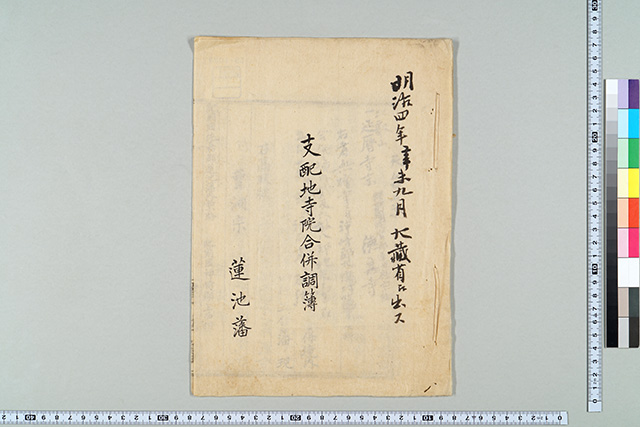 明治四年辛未九月大蔵省ニ出ス
支配地寺院合併調簿
蓮池藩